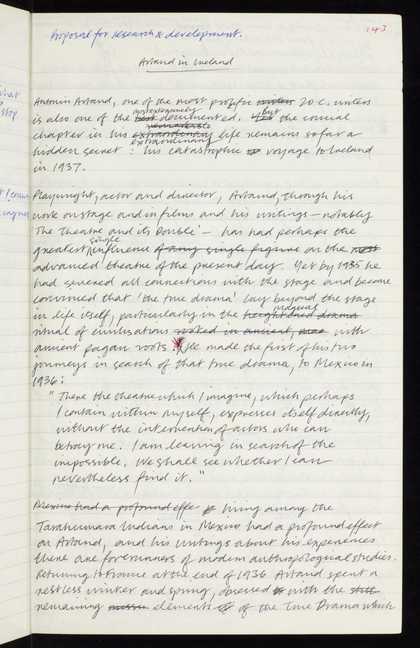 Proposal for research & development.
143
Artaud in Ireland
Antonin Artaud, one of the most prolific 20 c. writers
is also one of the best documented. Yet the crucial
chapter in his extraordinary life remains so far a
hidden secret : his catastrophic voyage to Ireland
in 1937.
Playwright, actor and director, Artaud, through his
work on stage and in films and his writings – notably
'The Theatre and its Double' – has had perhaps the
greatest single influence of any single figure on the most
advanced theatre of the present day. Yet by 1935 he
had severed all connections with the stage and become
convinced that 'the true drama' lay beyond the stage
in life itself, particularly in the magical
ritual of civilisations rooted in ancient, with
ancient pagan roots. He made the first of his two
journeys in search of that true drama, to Mexico in
1936 :
" There the theatre which I imagine, which perhaps
I contain within myself, expresses itself directly,
without the intervention of actors who can
betray me. I am leaving in search of the
impossible. We shall see whether I can
nevertheless find it. "
Mexico had a profound effec living among the
Tarahumara Indians in Mexico had a profound effect
on Artaud, and his writings about his experiences
there are forerunners of modern anthropological studies.
Returning to France at the end of 1936 Artaud spent a
restless winter and spring, obsessed with the still
remaining elements of the True Drama which